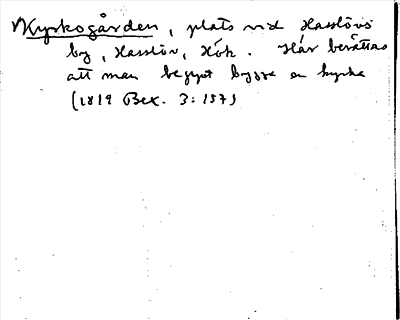 Kyrkogården, plats vid Hasslövs
by, Hasslöv, Hök. Här berättas
att man begynt bygga en kyrka
(1819 Bex. 3:157)